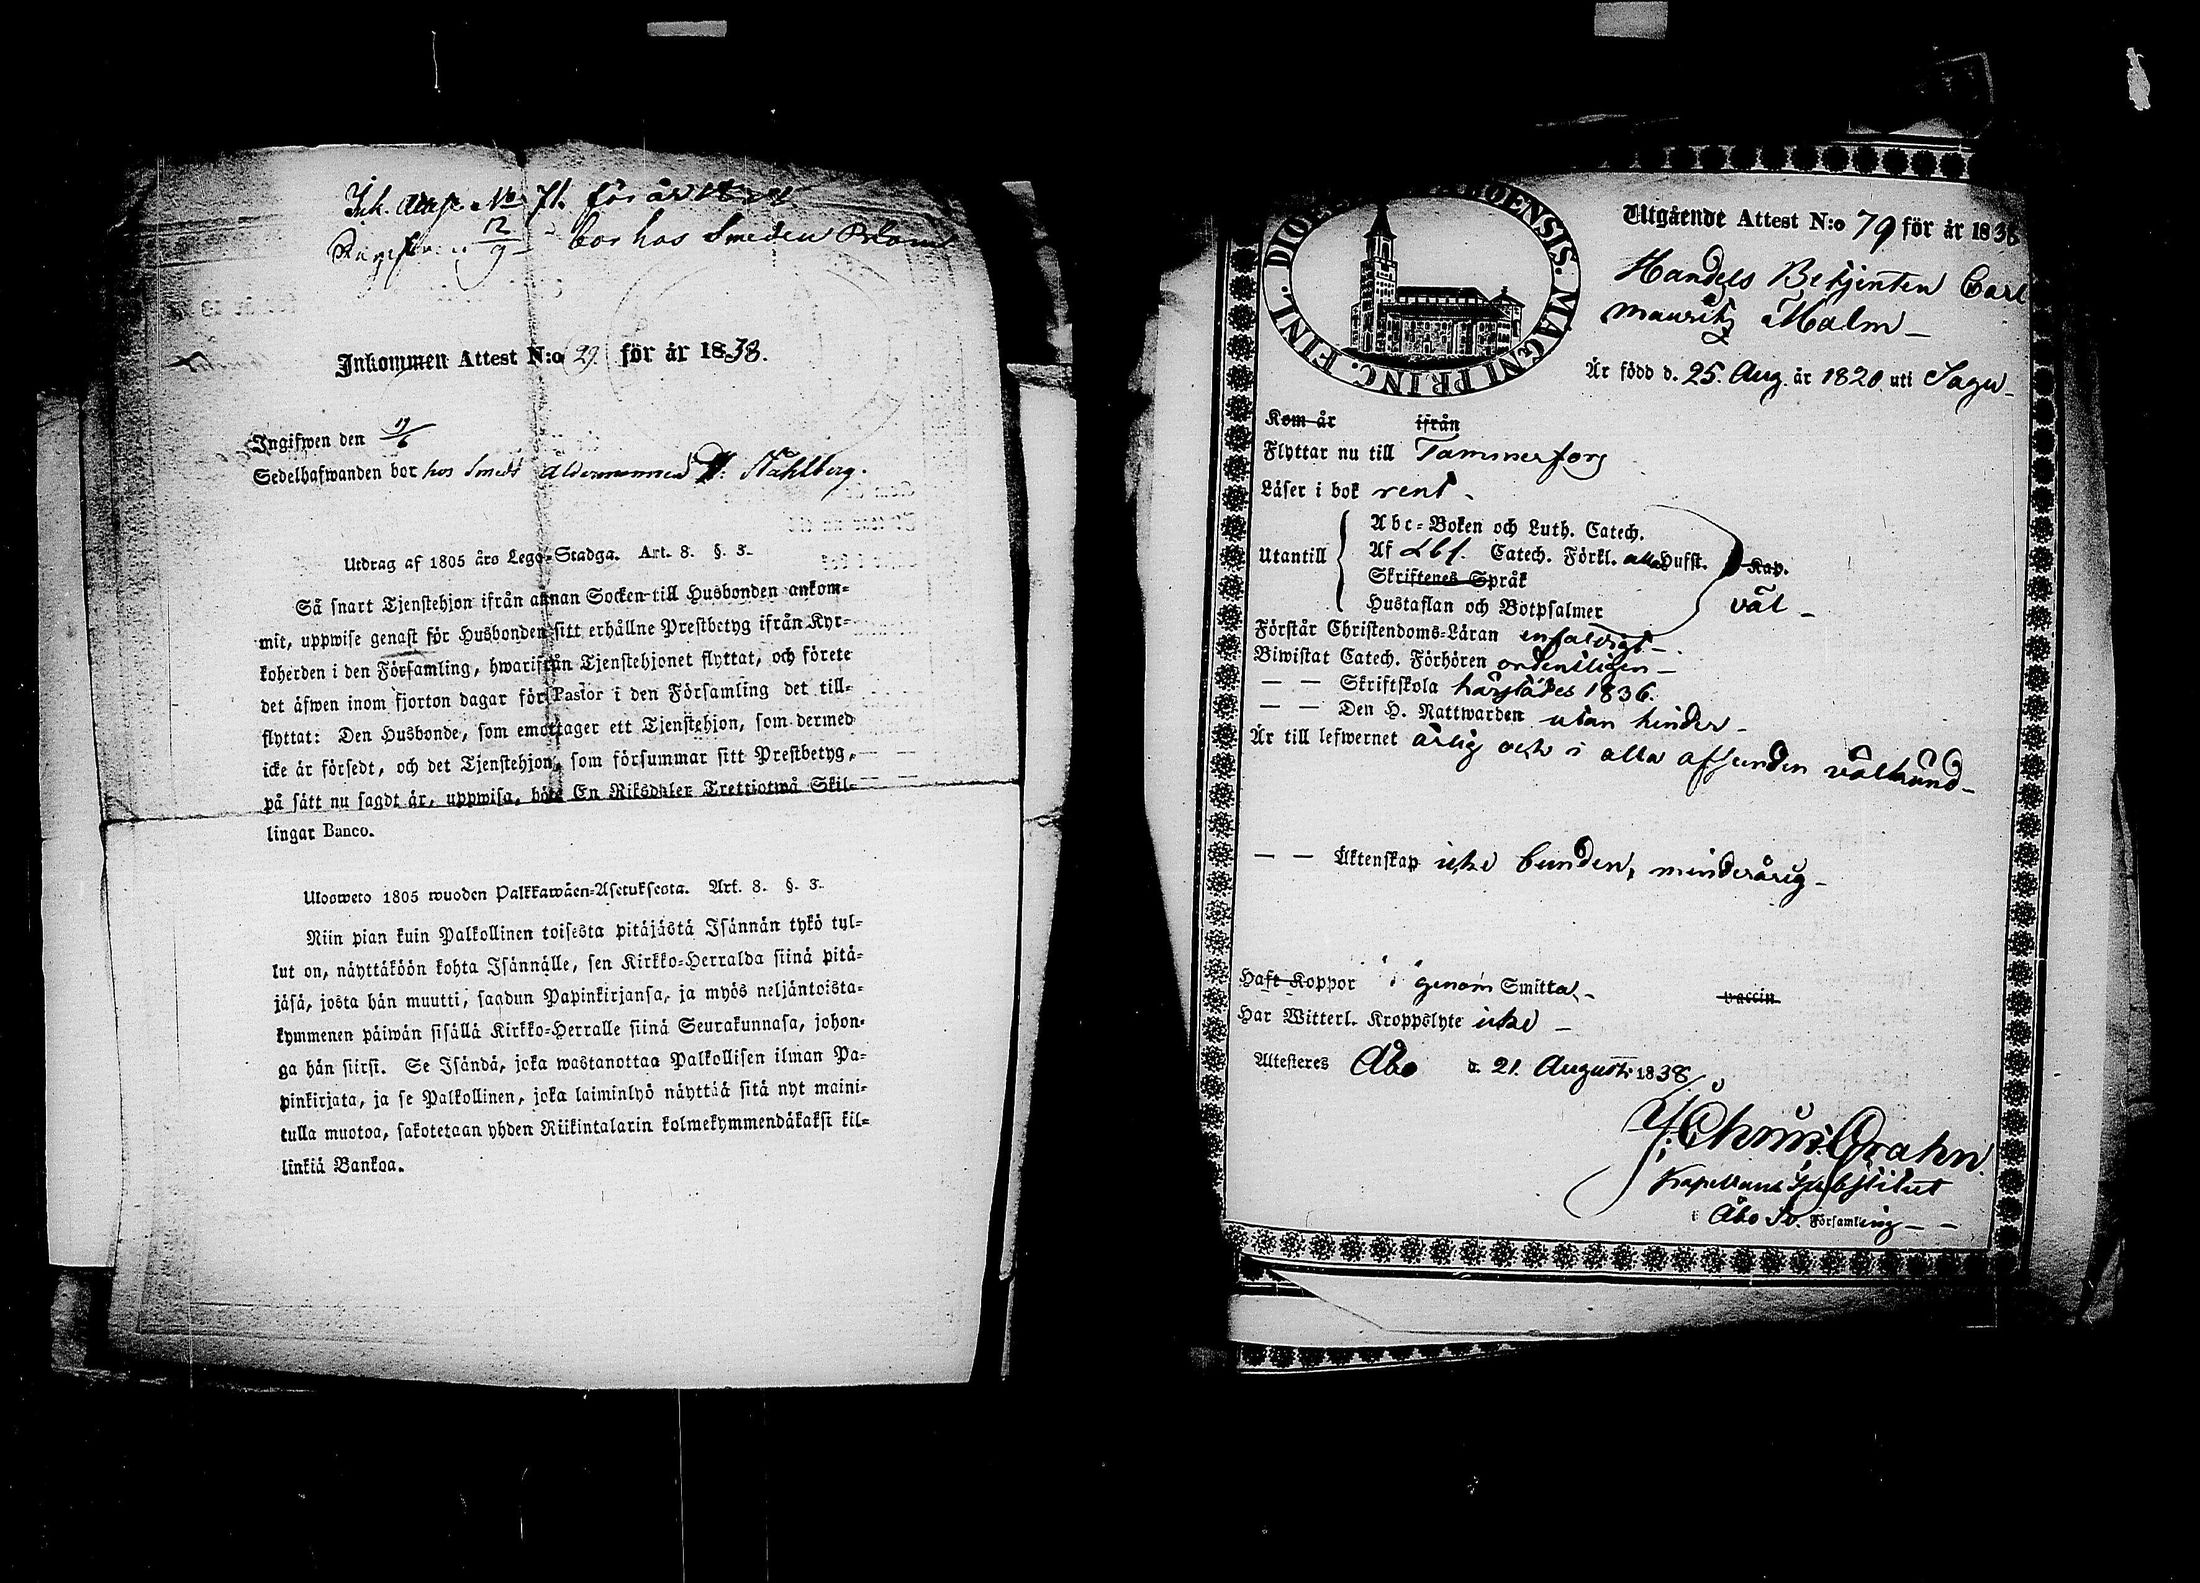 Ink. Attest No 71. för år
12/9 bor hos Smeden Blom
Inkommen Attest N:o 29 för år 1838.
Ingifwen den 17/6
Sedelhafwanden bor hos Smeds Åldermannen Ståhlberg.
Utdrag af 1805 års Lego-Stadga. Art. 8. §. 3.
Så snart Tjenstehjon ifrån annan Socken till Husbonden ankom-
mit, uppwise genast för Husbonden sitt erhållne Prestbetyg ifrån Kyr-
koherden i den Församling, hwarifrån Tjenstehjonet flyttat, och förete
det äfwen inom fjorton dagar för Pastor i den Församling det till-
flyttat: Den Husbonde, som emottager ett Tjenstehjon, som dermed
icke är försedt, och det Tjenstehjon, som försummar sitt Prestbetyg,
på sätt nu sagdt är, uppwisa, böte En Riksdaler Trettiotwå Skil-
lingar Banco.
Ulosweto 1805 wuoden Palkkawäen-Asetuksesta. Art. 8. §. 3.
Niin pian kuin Palkollinen toisesta pitäjästä Isännän tykö tul-
lut on, näyttäköön kohta Isännälle, sen Kirkko-Herralda siinä pitä-
jäsä, josta hän muutti, saadun Papinkirjansa, ja myös neljäntoista-
kymmenen päiwän sisällä Kirkko-Herralle siinä Seurakunnasa, johon-
ga hän siirsi. Se Isändä, joka wastanottaa Palkollisen ilman Pa-
pinkirjata, ja se Palkollinen, joka laiminlyö näyttää sitä nyt maini-
tulla muotoa, sakotetaan yhden Riikintalarin kolmekymmendäkaksi kil-
linkiä Bankoa.
DIOE ABOENSIS. MAGNI PRINC. FINL.
Utgående Attest N:o 79 för år 1838
Handels Betjenten Carl
Mauritz Malm
Är född d. 25. Aug. år 1820 uti Sagu
Kom år ifrån
Flyttar nu till Tammerfors
Läser i bok rent
Utantill
Abc-Boken och Luth. Catech.
Af Lbf. Catech. Förkl. alla Hufst. Kap.
Skriftenes Språk
Hustaflan och Botpsalmer väl
Förstår Christendoms-Läran enfaldigt
Biwistat Catech. Förhören ordentligen
— — Skriftskola härstädes 1836.
— — Den H. Nattwarden utan hinder
Är till lefwernet ärlig och i alla afseenden välkänd
— — Äktenskap icke bunden, minderårig
Haft Koppor genom Smitta vaccin
Har Witterl. Kroppslyte icke
Attesteres Åbo d. 21. Augusti 1838
Grahn
Kapellans Substitut
i Åbo Sv. Församling